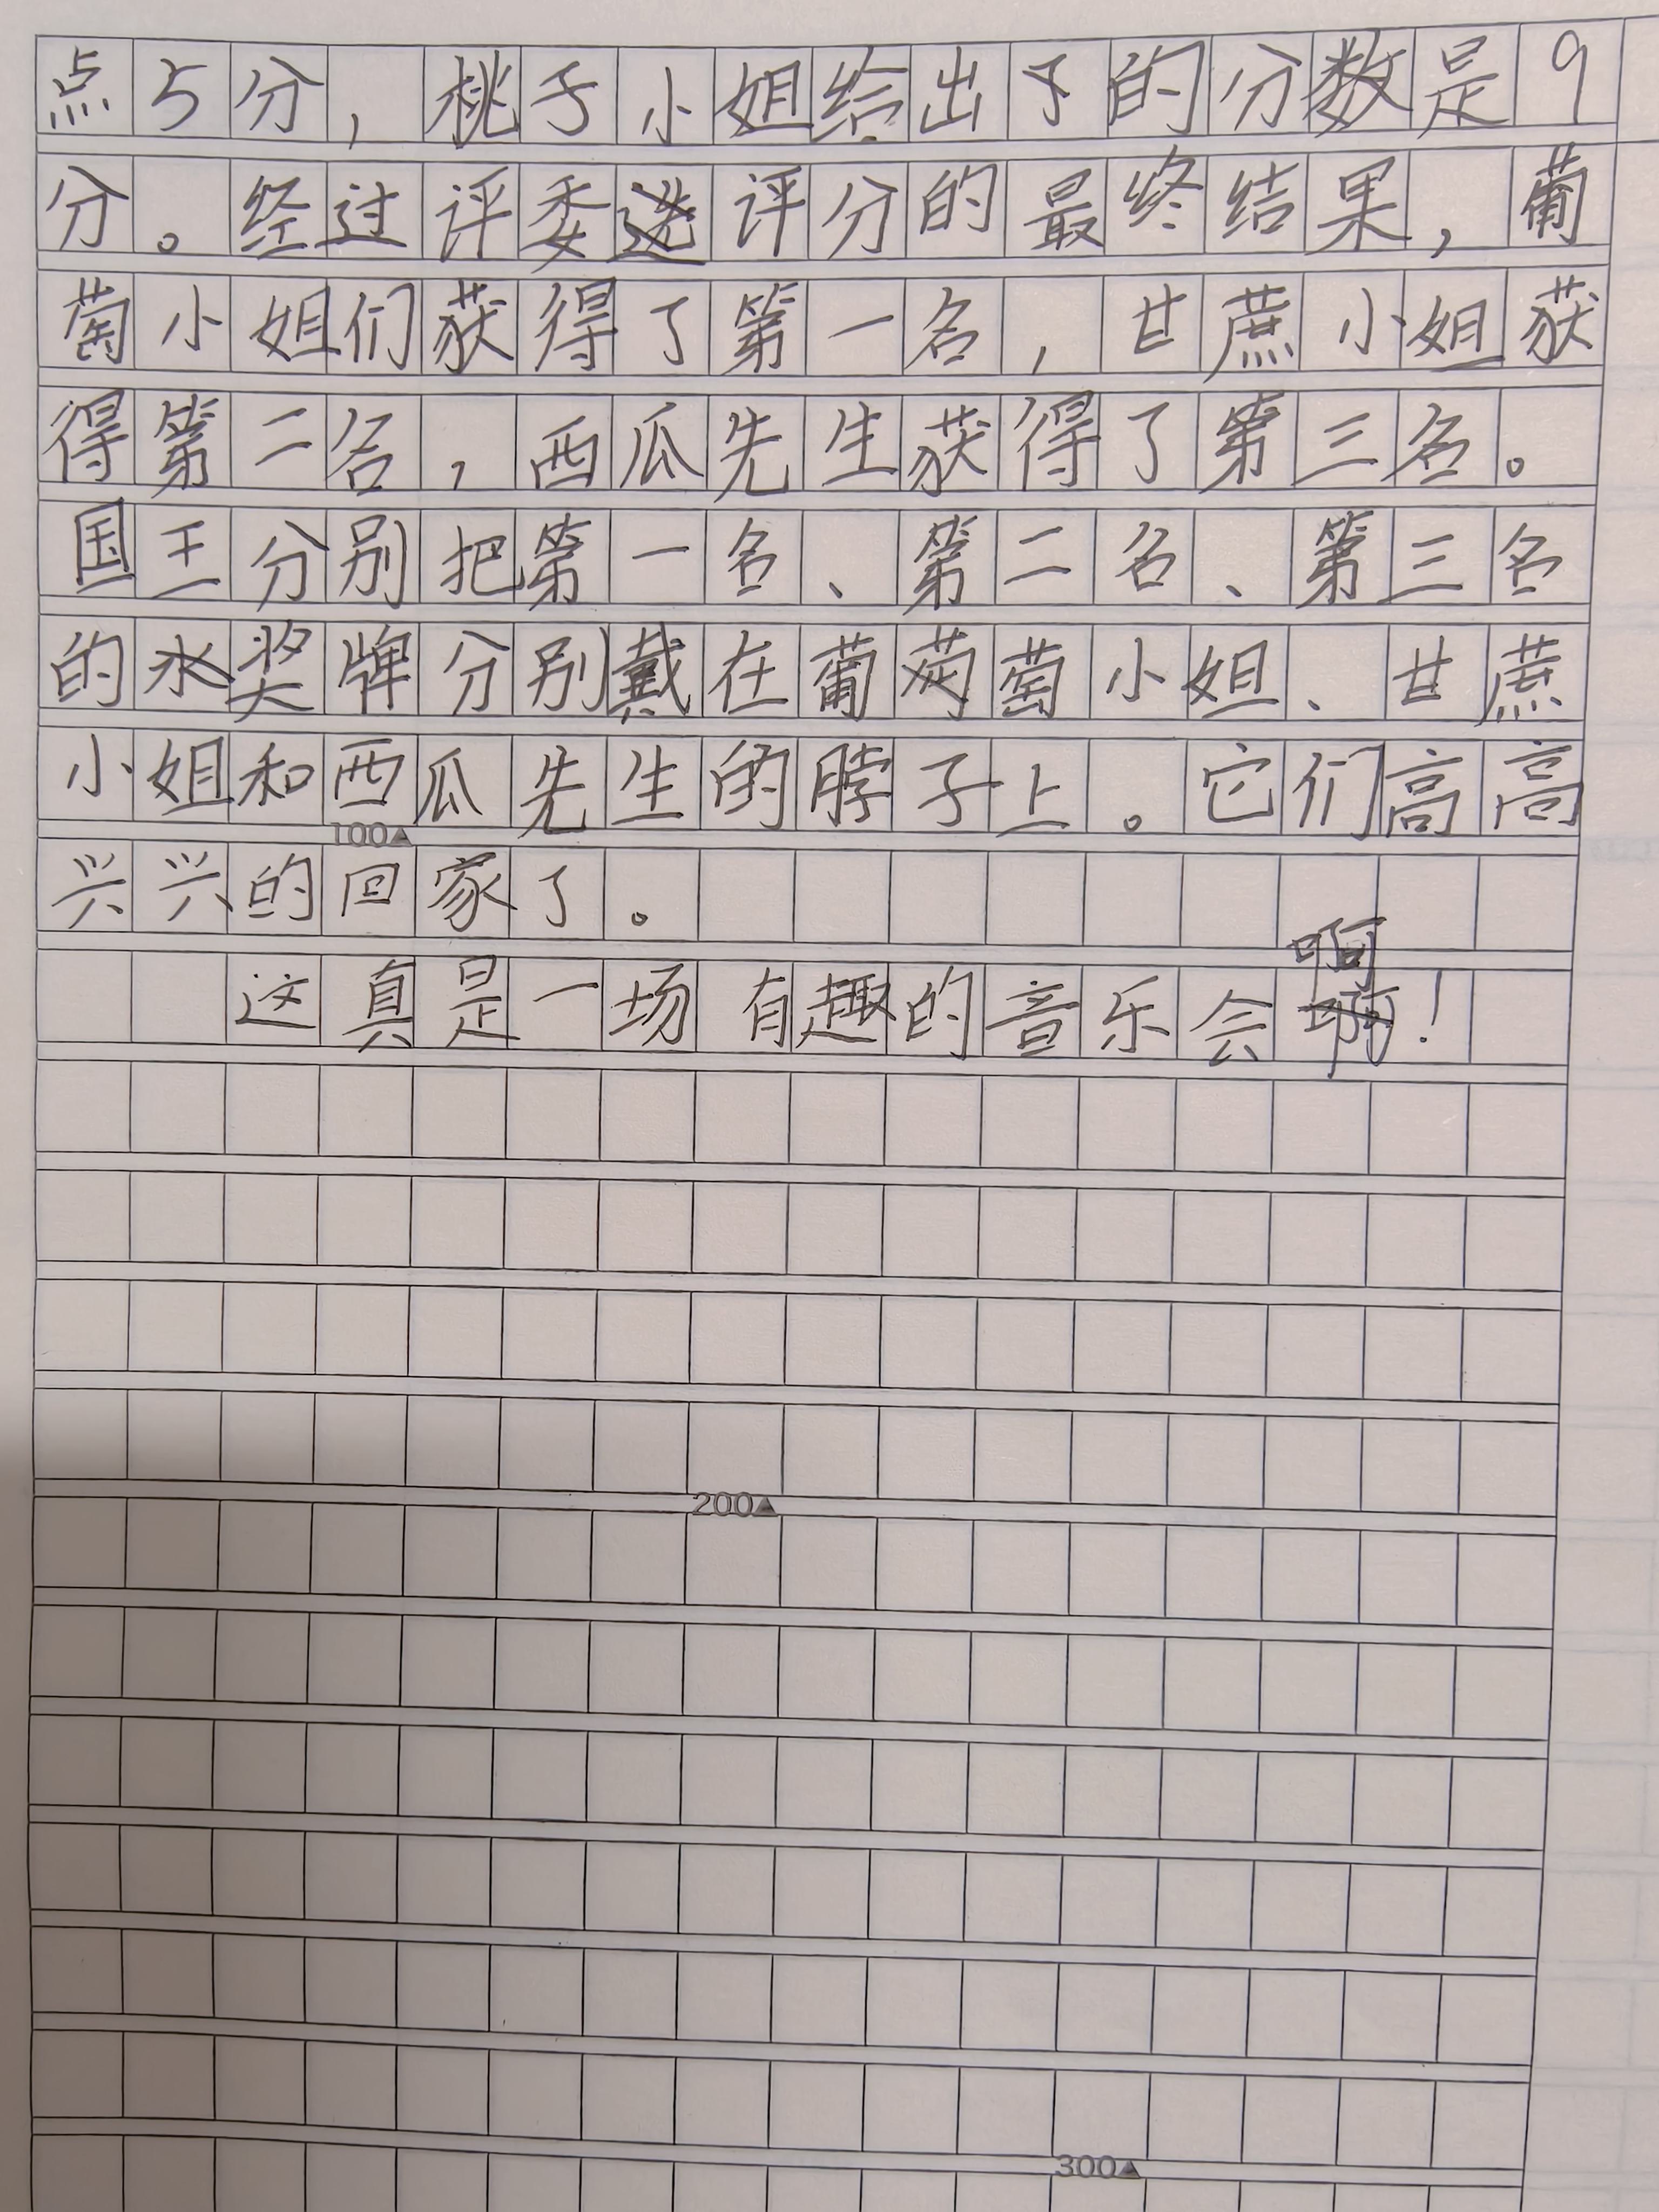 点5分，桃子小姐给出了的分数是9
分。经过评委评分的最终结果，葡
萄小姐们获得了第一名，甘蔗小姐获
得第二名，西瓜先生获得了第三名。
国王分别把第一名、第二名、第三名
的奖牌分别戴在葡萄小姐、甘蔗
小姐和西瓜先生的脖子上。它们高高
100▲
兴兴的回家了。
这真是一场有趣的音乐会啊！
200▲
300▲